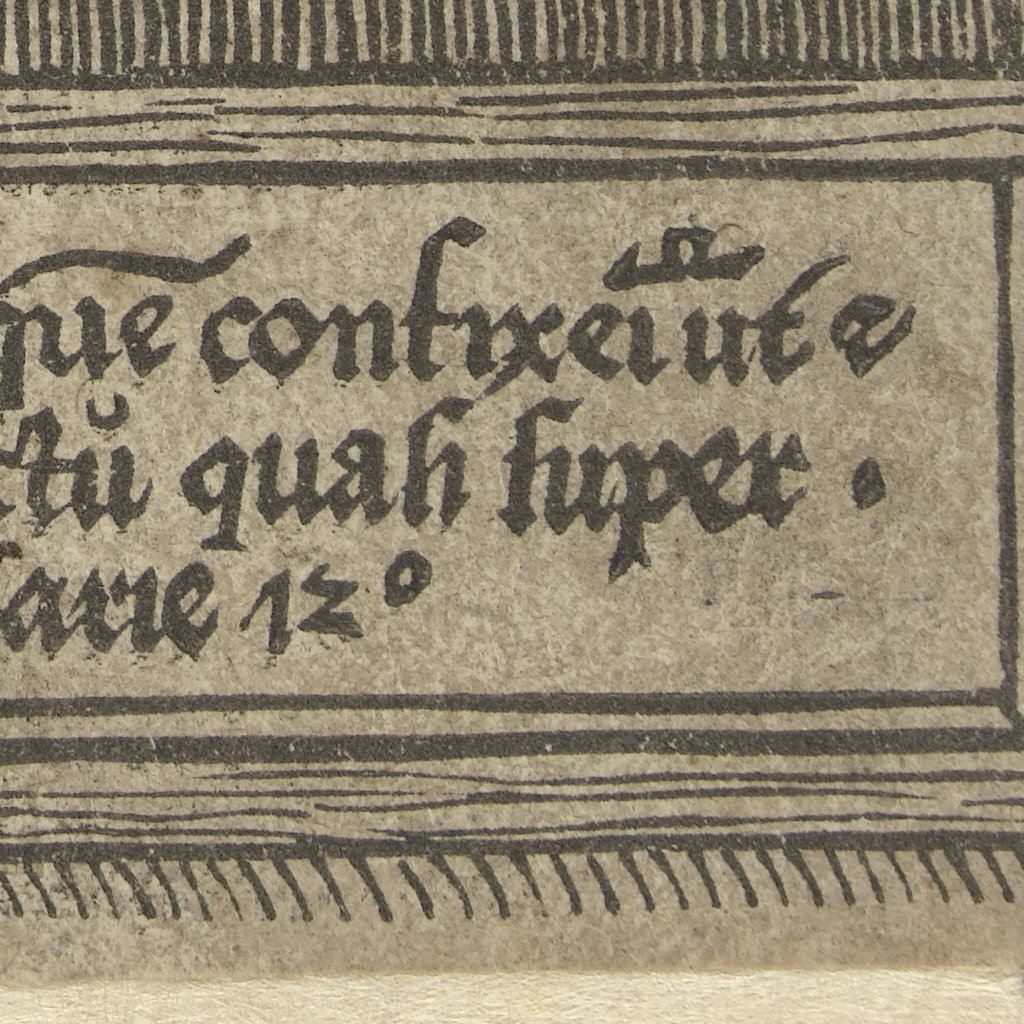 quē confixerūt &
ctū quasi super ·
arie 12º